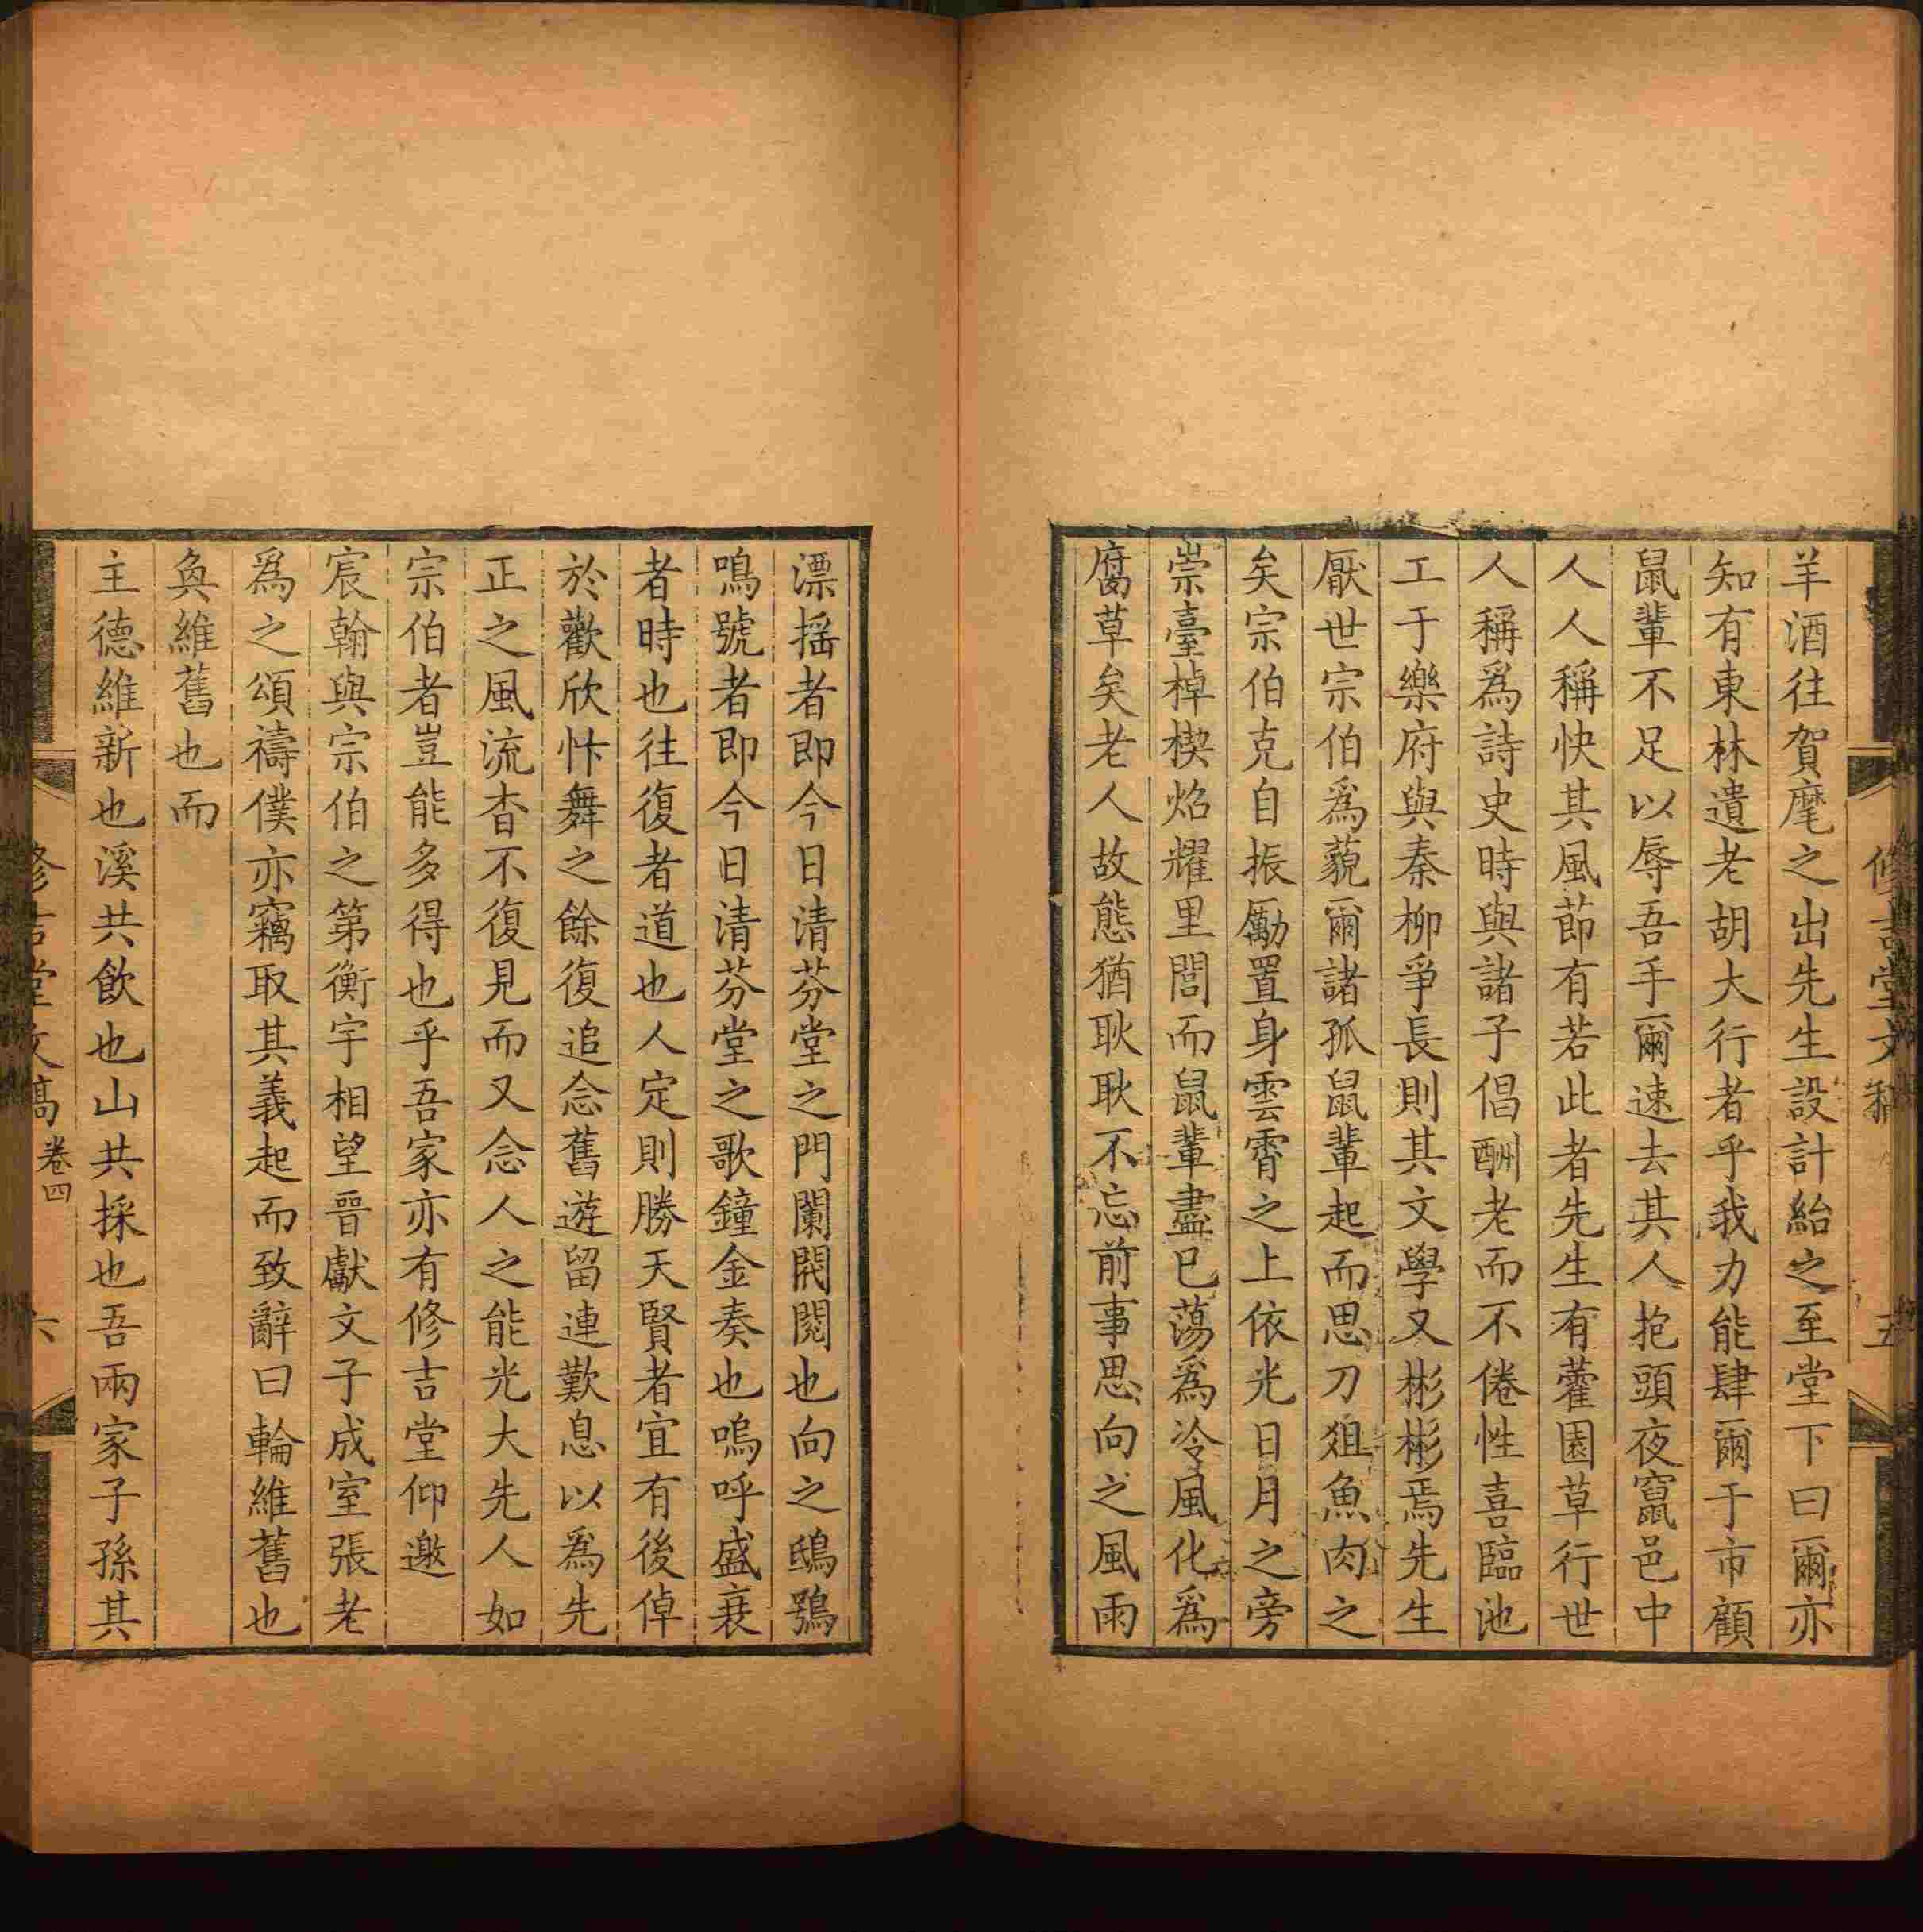 修吉堂文稿
五
羊酒往賀麾之出先生設計紿之至堂下曰爾亦
知有東林遺老胡大行者乎我力能肆爾于市顧
鼠輩不足以辱吾手爾速去其人抱頭夜竄邑中
人人稱快其風節有若此者先生有藿園草行世
人稱爲詩史時與諸子倡酬老而不倦性喜臨池
工于樂府與秦柳爭長則其文學又彬彬焉先生
厭世宗伯爲藐爾諸孤鼠輩起而思刀俎魚肉之
矣宗伯克自振勵置身雲霄之上依光日月之旁
崇臺棹楔焰耀里閭而鼠輩盡已蕩爲冷風化爲
腐草矣老人故態猶耿耿不忘前事思向之風雨
漂揺者即今日清芬堂之門闌閥閱也向之鴟鴞
鳴號者即今日清芬堂之歌鐘金奏也嗚呼盛衰
者時也往復者道也人定則勝天賢者宜有後倬
於歡欣忭舞之餘復追念舊遊留連歎息以爲先
正之風流杳不復見而又念人之能光大先人如
宗伯者豈能多得也乎吾家亦有修吉堂仰邀
宸翰與宗伯之第衡宇相望晉獻文子成室張老
爲之頌禱僕亦竊取其義起而致辭曰輪維舊也
奐維舊也而
主德維新也溪共飲也山共採也吾兩家子孫其
修吉堂文稿 卷四
六